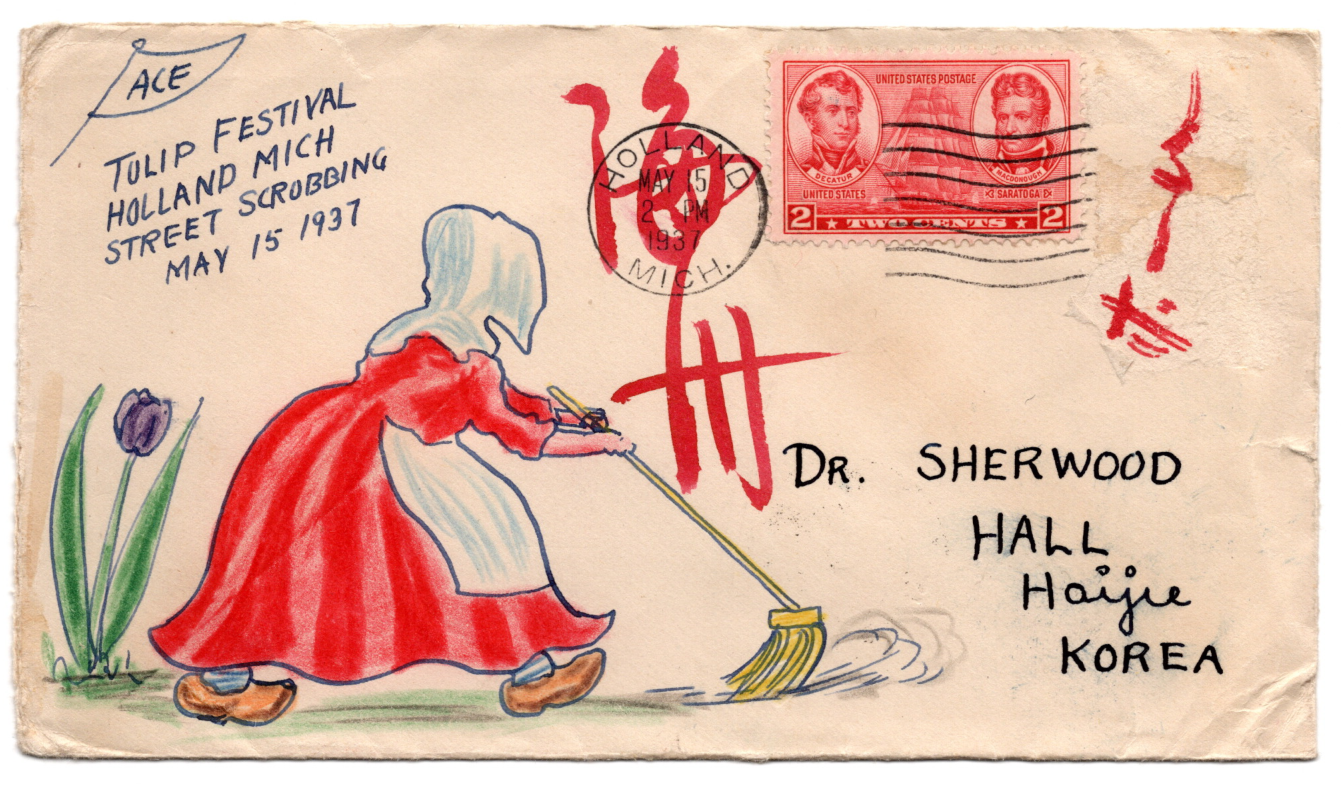 ACE
TULIP FESTIVAL
HOLLAND MICH
STREET SCROBBING
MAY 15 1937
海州
HOLLAND
MAY 15
2 PM
1937
MICH.
UNITED STATES POSTAGE
DECATUR
MACDONOUGH
UNITED STATES
SARATOGA
2 TWO CENTS 2
DR. SHERWOOD
HALL
KOREA